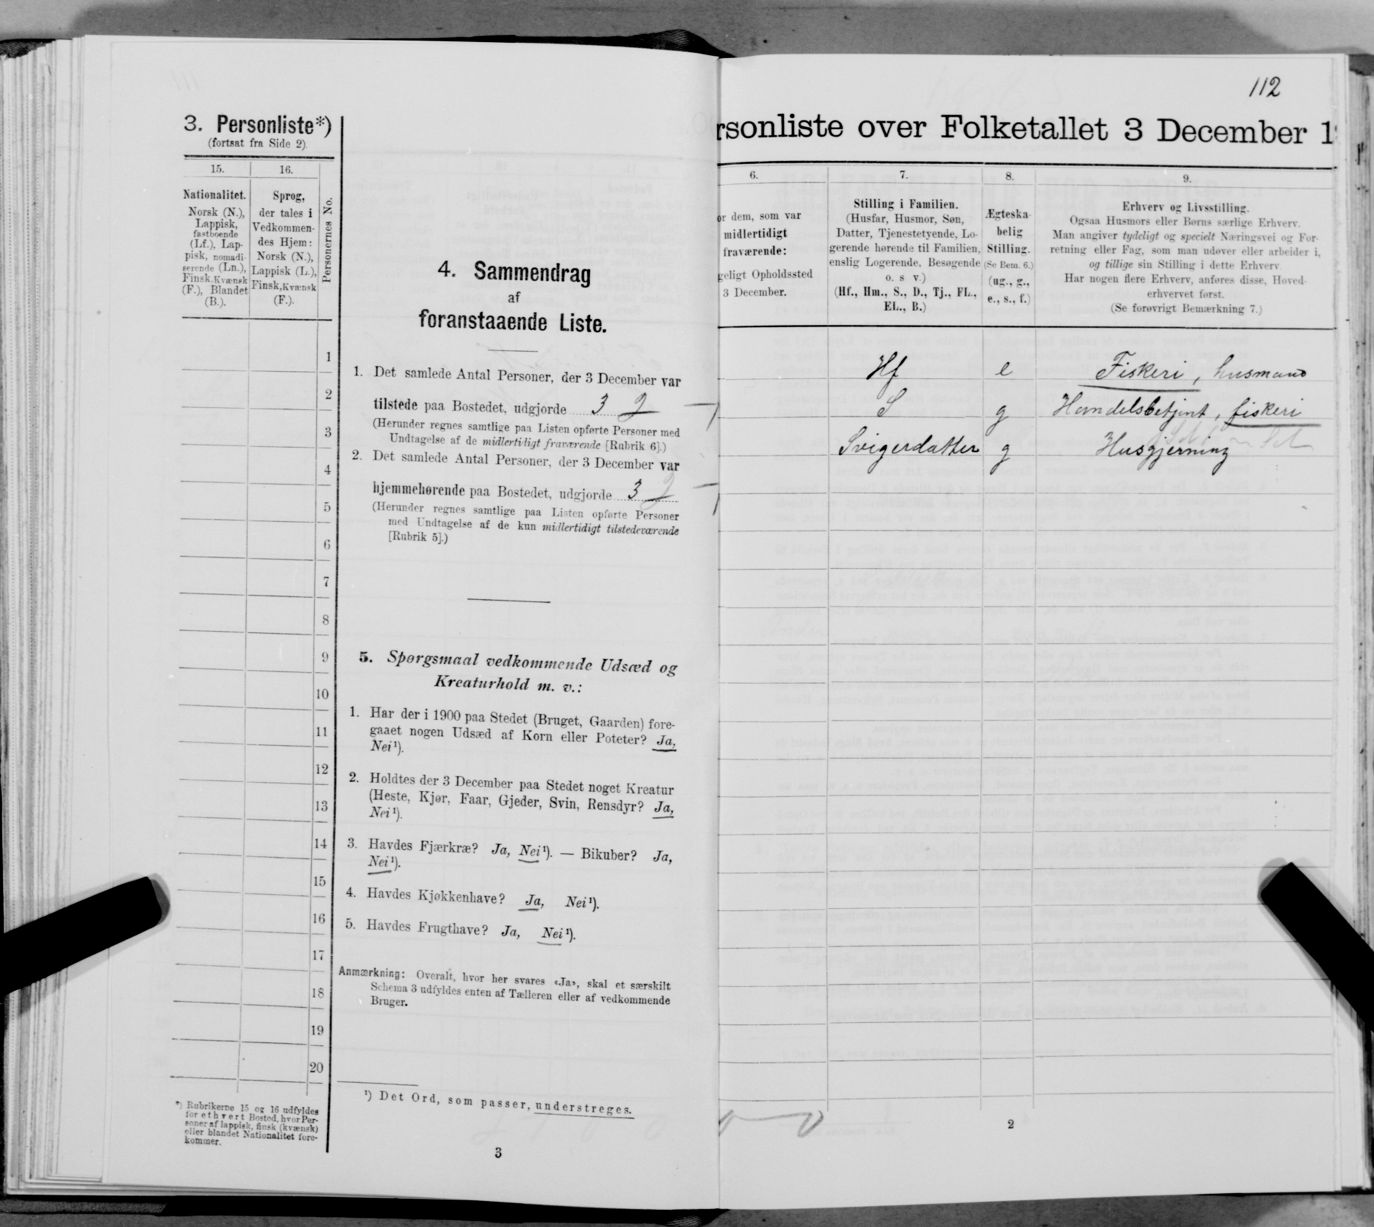 3. Personliste*)
(fortsat fra Side 2).
15.
16.
Nationalitet.
Norsk (N.),
Lappisk,
fastboende
(Lf.), Lap-
pisk, nomadi-
serende (Ln.),
Finsk, Kvænsk
(F.), Blandet
(B.).
Sprog,
der tales i
Vedkommen-
des Hjem:
Norsk (N.),
Lappisk (L.),
Finsk, Kvænsk
(F.).
Personernes No.
1
2
3
4
5
6
7
8
9
10
11
12
13
14
15
16
17
18
19
20
*) Rubrikerne 15 og 16 udfyldes
for ethvert Bosted, hvor Per-
soner af lappisk, finsk (kvænsk)
eller blandet Nationalitet fore-
kommer.
4. Sammendrag
af
foranstaaende Liste.
1. Det samlede Antal Personer, der 3 December var
tilstede paa Bostedet, udgjorde 3 2
(Herunder regnes samtlige paa Listen opførte Personer med
Undtagelse af de midlertidigt fraværende [Rubrik 6].)
2. Det samlede Antal Personer, der 3 December var
hjemmehørende paa Bostedet, udgjorde 3 2
(Herunder regnes samtlige paa Listen opførte Personer
med Undtagelse af de kun midlertidigt tilstedeværende
[Rubrik 5].)
5. Spørgsmaal vedkommende Udsæd og
Kreaturhold m. v.:
1. Har der i 1900 paa Stedet (Bruget, Gaarden) fore-
gaaet nogen Udsæd af Korn eller Poteter? Ja,
Nei¹).
2. Holdtes der 3 December paa Stedet noget Kreatur
(Heste, Kjør, Faar, Gjeder, Svin, Rensdyr? Ja,
Nei¹).
3. Havdes Fjærkræ? Ja, Nei¹). — Bikuber? Ja,
Nei¹).
4. Havdes Kjøkkenhave? Ja, Nei¹).
5. Havdes Frugthave? Ja, Nei¹).
Anmærkning: Overalt, hvor her svares «Ja», skal et særskilt
Schema 3 udfyldes enten af Tælleren eller af vedkommende
Bruger.
¹) Det Ord, som passer, understreges.
3
112
rsonliste over Folketallet 3 December 1
6.
7.
8.
9.
or dem, som var
midlertidigt
fraværende:
geligt Opholdssted
3 December.
Stilling i Familien.
(Husfar, Husmor, Søn,
Datter, Tjenestetyende, Lo-
gerende hørende til Familien,
enslig Logerende, Besøgende
o. s v.)
(Hf., Hm., S., D., Tj., FL.,
EL., B.)
Ægteska-
belig
Stilling.
(Se Bem. 6.)
(ug., g.,
e., s., f.)
Erhverv og Livsstilling.
Ogsaa Husmors eller Børns særlige Erhverv.
Man angiver tydeligt og specielt Næringsvei og For-
retning eller Fag, som man udøver eller arbeider i,
og tillige sin Stilling i dette Erhverv
Har nogen flere Erhverv, anføres disse, Hoved-
erhvervet først.
(Se forøvrigt Bemærkning 7.)
Hf e Fiskeri, husmand
S g Handelsbetjent, fiskeri
Svigerdatter g Husgjerning
2